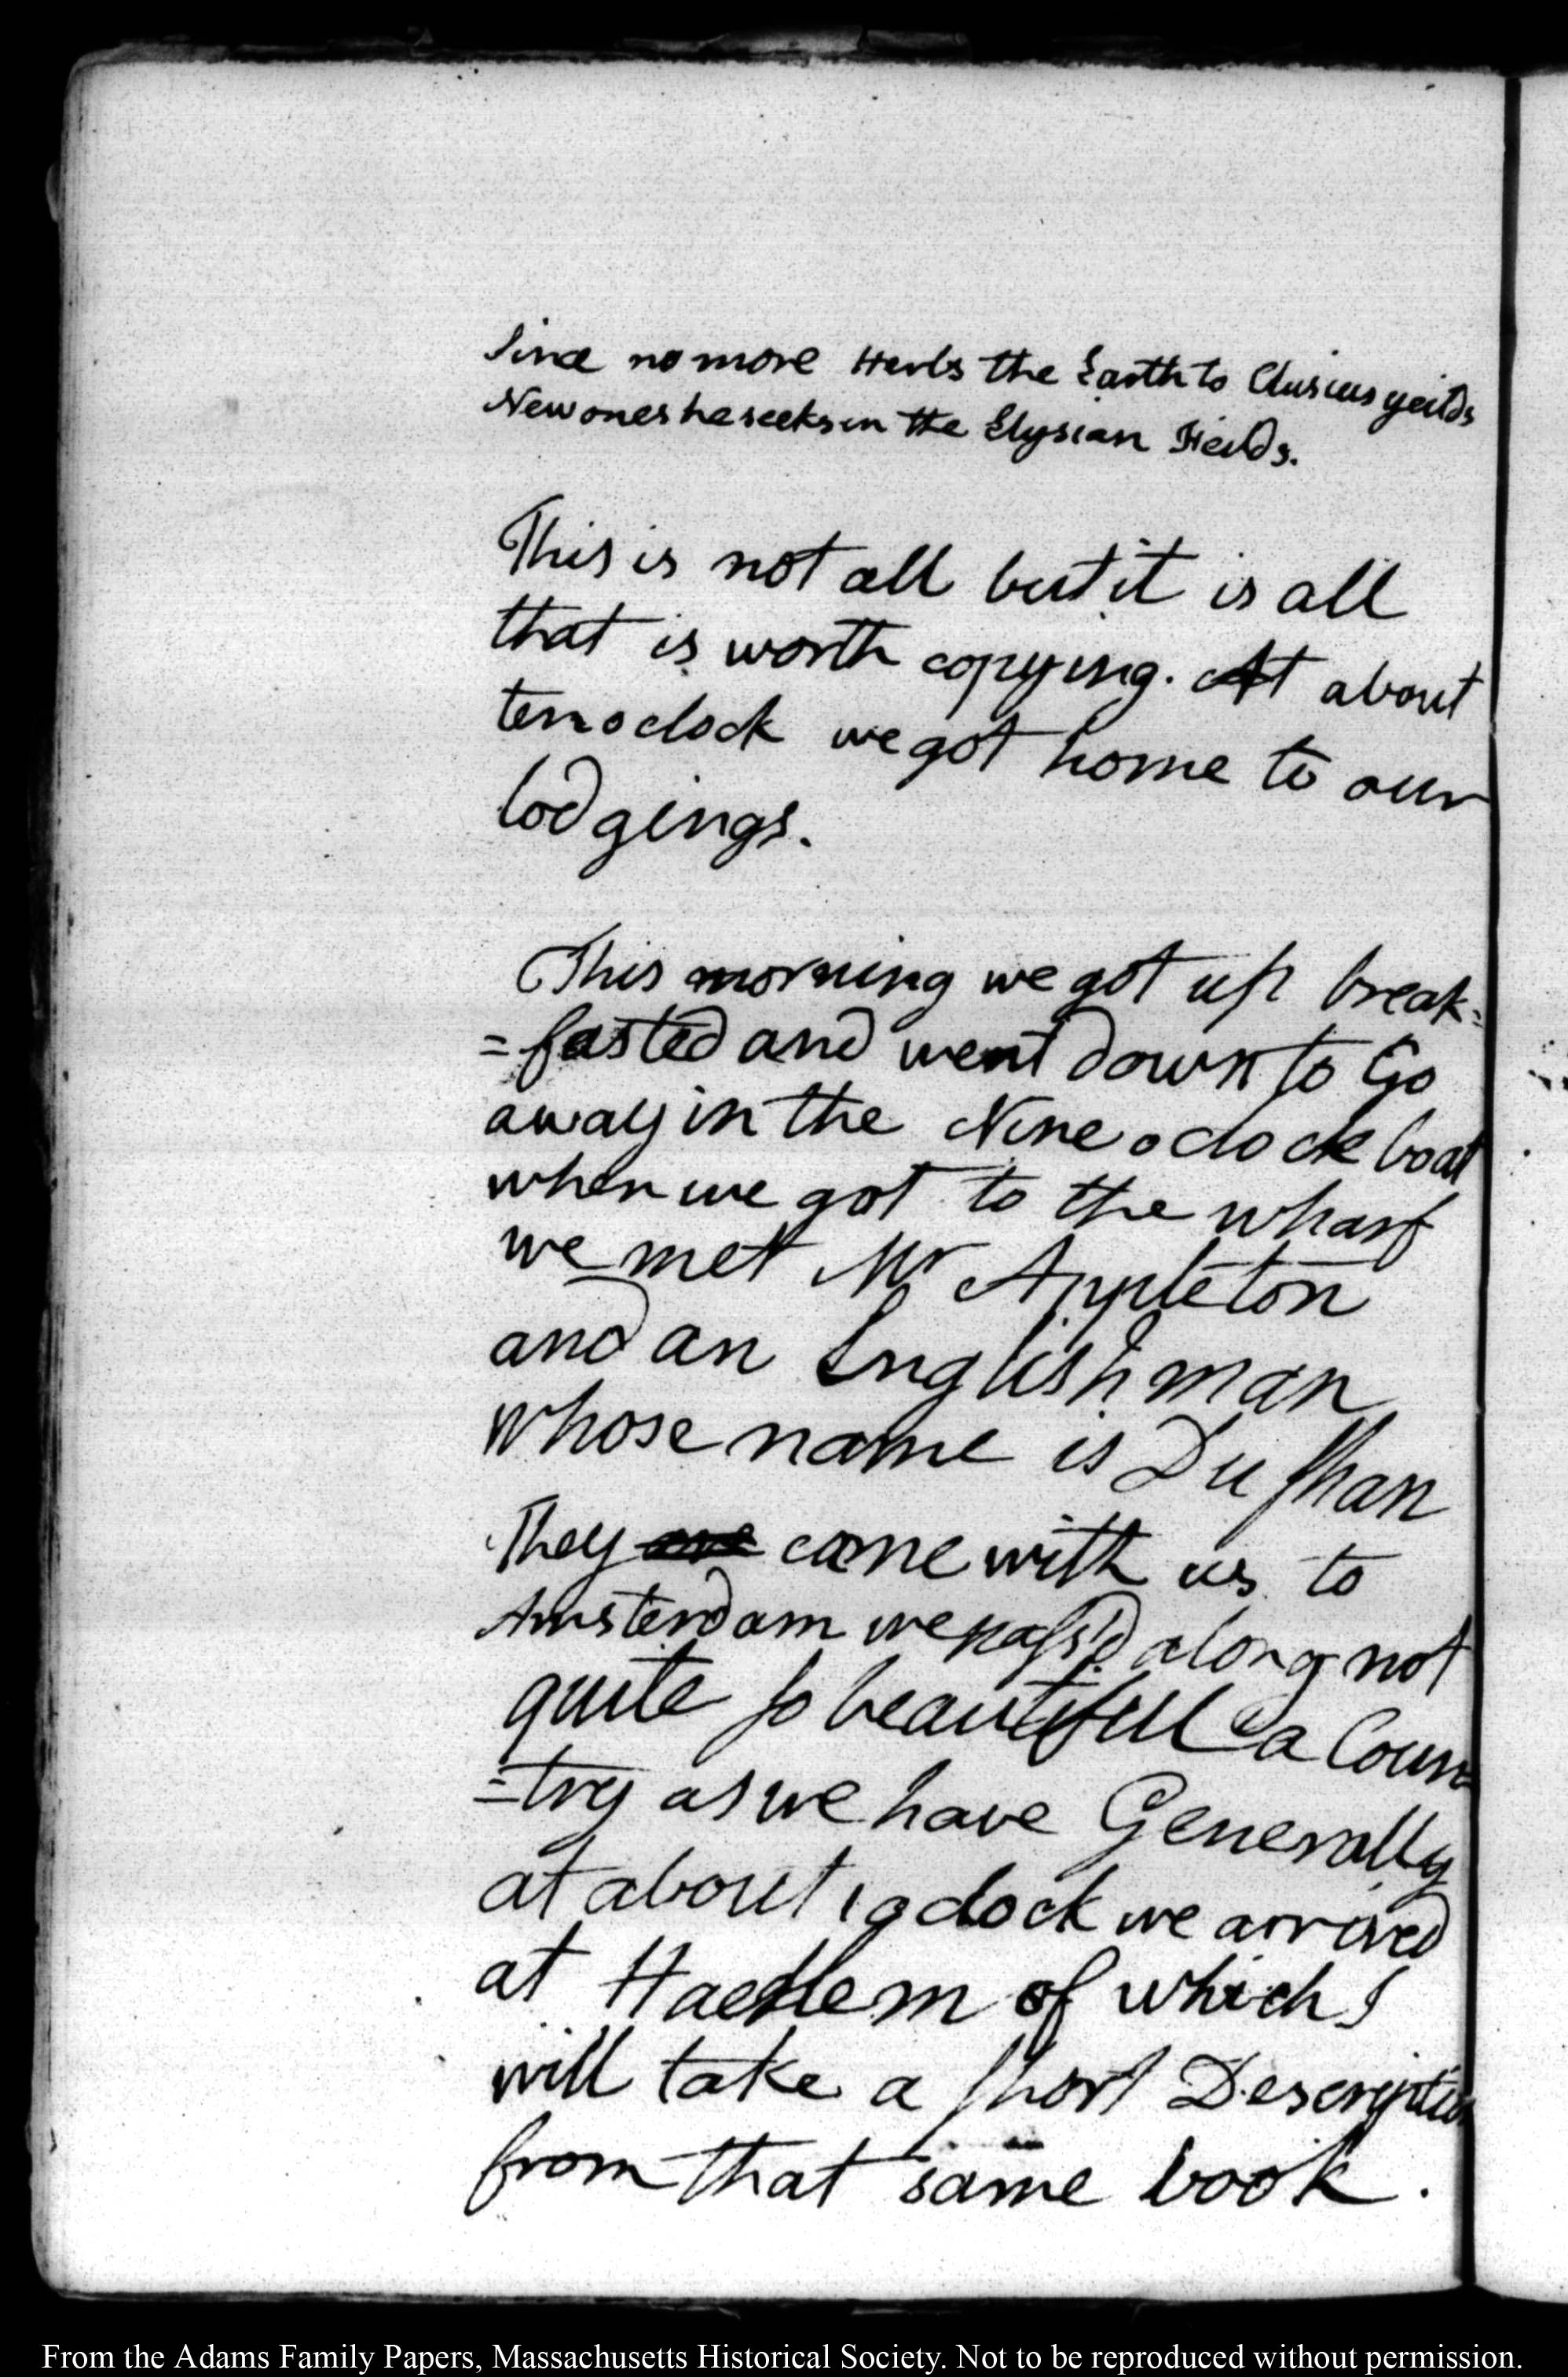 Since no more Herbs the Earth to Clusius yeilds
New ones he seeks in the Elysian Fields.
This is not all but it is all
that is worth copying. At about
ten o clock we got home to our
lodgings.
This morning we got up break=
=fasted and went down to Go
away in the Nine o clock boat
when we got to the wharf
we met Mr Appleton
and an Englishman
whose name is Du Shan
They are came with us to
Amsterdam we pass'd along not
quite so beautifull a Coun=
=try as we have Generally
at about 1 o clock we arrived
at Haerlem of which I
will take a short Description
from that same book.
From the Adams Family Papers, Massachusetts Historical Society. Not to be reproduced without permission.